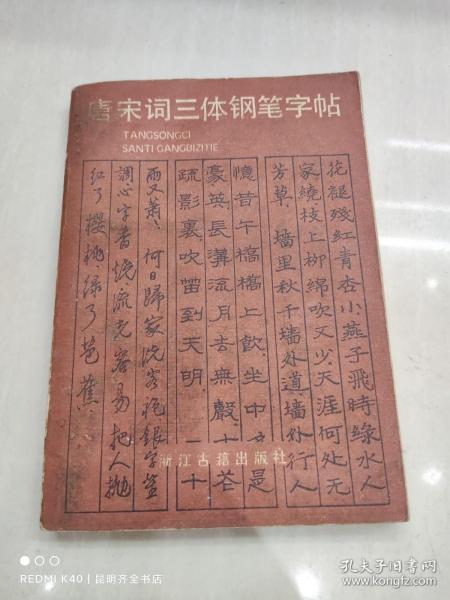 唐宋词三体钢笔字帖
TANGSONGCI
SANTI GANGBIZITIE
花褪殘紅青杏小燕子飛時緑水人
家繞枝上柳綿吹又少天涯何处無
芳草、墻里秋千墻外道、墻外行人
憶昔午橋橋上飲、坐中多是
豪英、長溝流月去無聲、杏花
疏影裏、吹笛到天明、二十
雨又蕭、何日歸家洗客袍銀字笙
調心字香燒流光容易把人抛
紅了櫻桃綠了芭蕉
浙江古籍出版社
REDMI K40 | 昆明齐全书店
孔夫子旧书网
www.kongfz.com